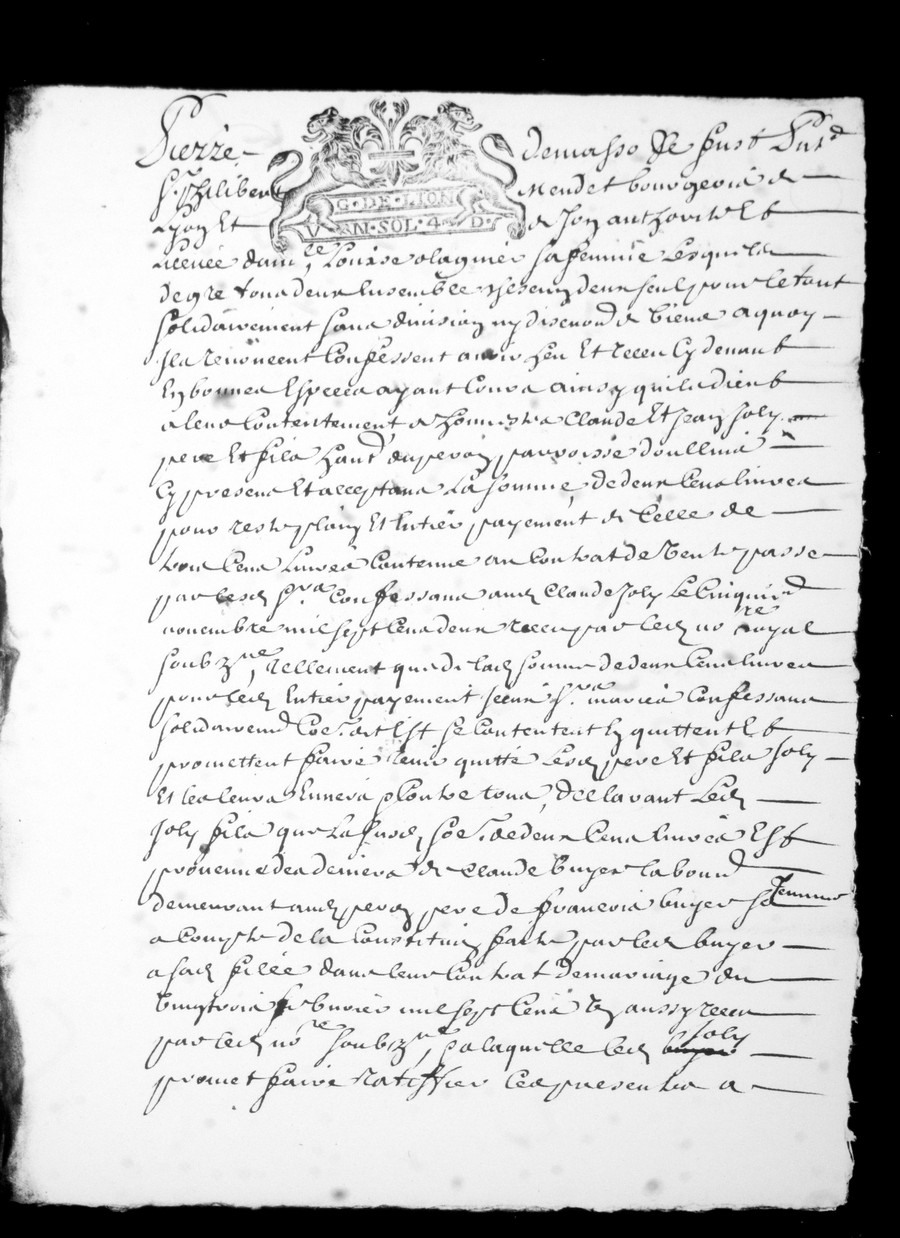 Pierre
demasso Re fust Pnt
Sr philibert
Mendet bourgeois de
G · DE · LION
Lyon Et
de son authorité Et
V · N · SOL · 4 · D ·
licencé dam.lle Louise olagnier sa femme Lesquels
de gre tous deux Ensemble Et chescung deux seul pour le tout
solidairement sans division ny discution de biens a quoy
Ils renoncent Confessent avoir heu Et receu Cy devant
En bonnes Especes ayant Cours ainsy quils dient
a leur Contentement de honnestes Claude Et Jean Joly
pere Et fils hants du peron parroisse doullins
Cy presens Et acceptans La somme de deux Cens livres
pour reste plain Et Entier payement de Celle de
trois Cens Livres Contenue au Contrat de vente passe
par lesd Srs Confessans aud Claude Joly Le Cinquie
novembre mil sept Cens deux receu par led no.re royal
soubz.ne, tellement que de lad somme de deux Cens livres
pour led Entier payement
mariés Confessans
solidairemt Coe. dit Est se Contentent En quittent Et
promettent faire tenir quitte Lesd pere Et fils Joly
Et les leurs Envers Et Contre tous, declarant Led
Joly fils que La susd soe. de deux Cens livres Est
provenue des deniers de Claude buyer labour
demeurant aud peron pere de francoise buyer sa femme
a Compte de la Constitution faite par led buyer
a sad fille dans leur Contrat de mariage du
vingtrois febvrier mil sept Cens
aussy receu
par led no.re soubz.ne, a laquelle led Joly
promet faire Ratiffier Ces presentes a